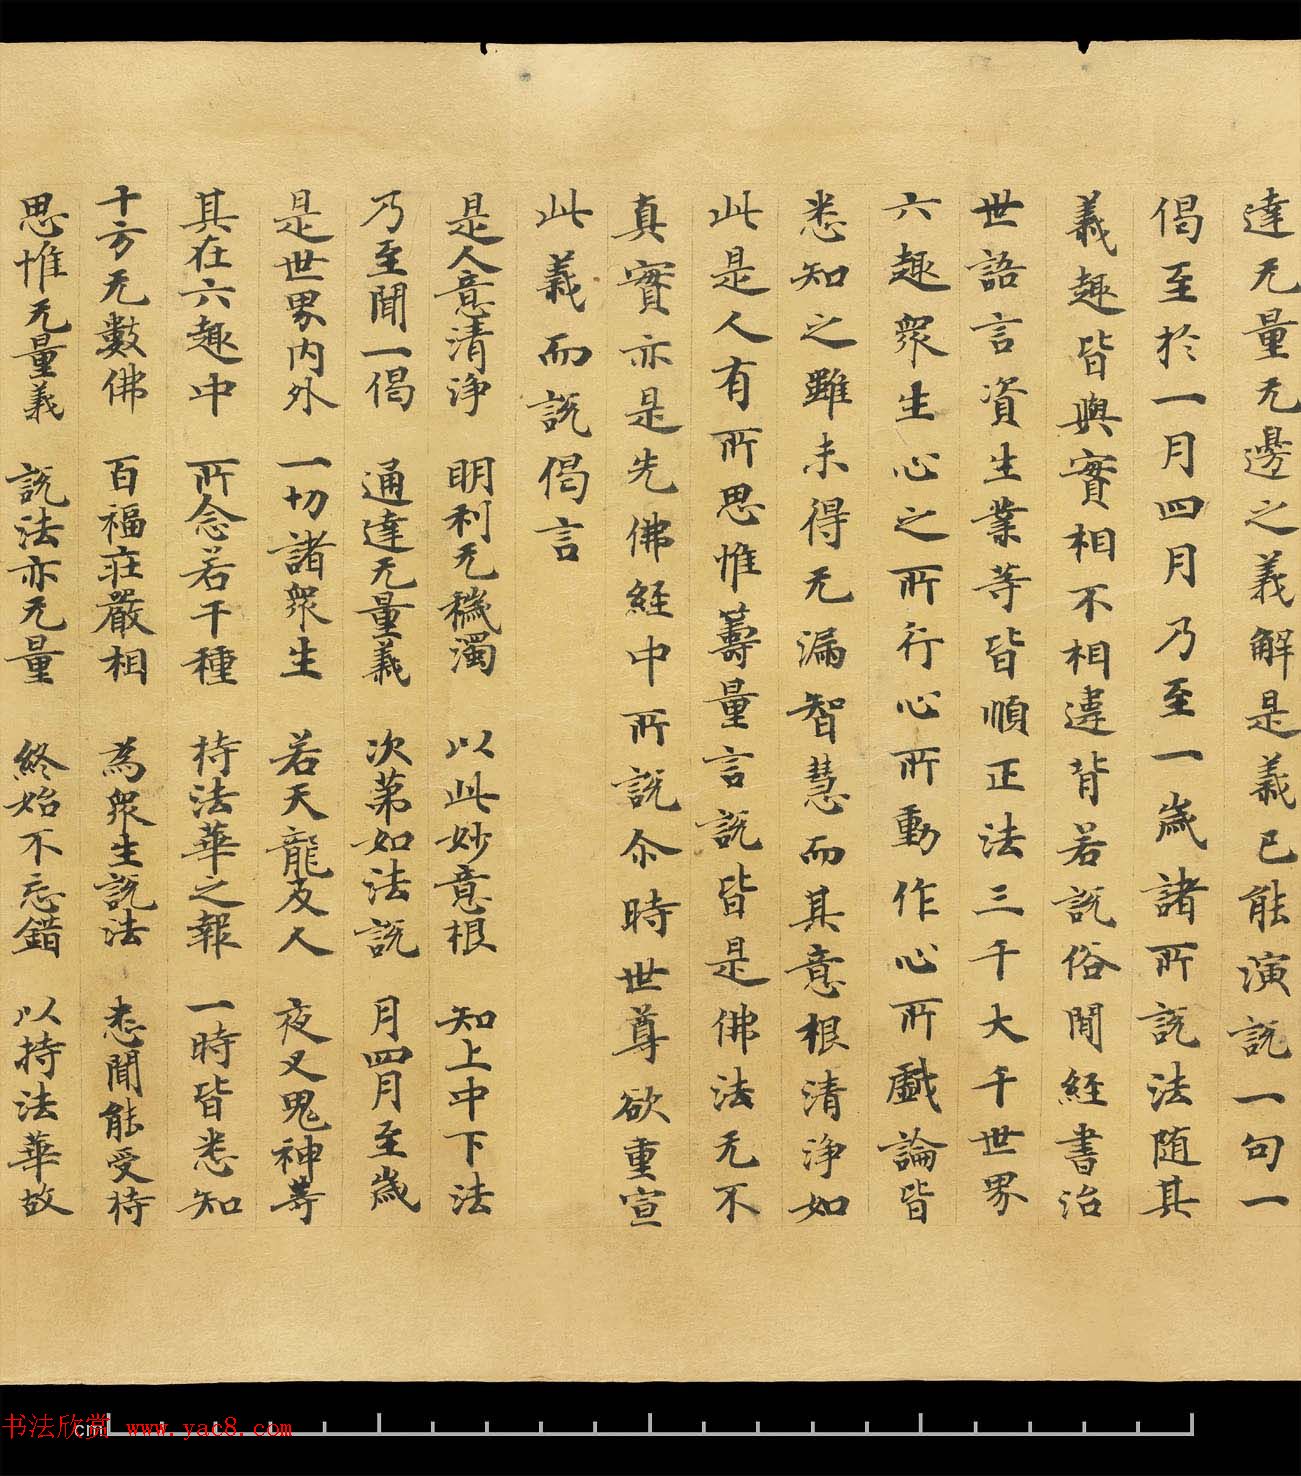 達无量无邊之義解是義已能演説一句一
偈至於一月四月乃至一歲諸所説法随其
義趣皆與實相不相違背若説俗閒經書治
世語言資生業等皆順正法三千大千世界
六趣衆生心之所行心所動作心所戲論皆
悉知之雖未得无漏智慧而其意根清淨如
此是人有所思惟籌量言説皆是佛法无不
真實亦是先佛經中所説尒時世尊欲重宣
此義而説偈言
是人意清淨 明利无穢濁 以此妙意根 知上中下法
乃至聞一偈 通達无量義 次第如法説 月四月至歲
是世界内外 一切諸衆生 若天龍及人 夜叉鬼神等
其在六趣中 所念若干種 持法華之報 一時皆悉知
十方无數佛 百福莊嚴相 為衆生説法 悉聞能受持
思惟无量義 説法亦无量 終始不忘錯 以持法華故
书法欣赏 www.yac8.com
cm